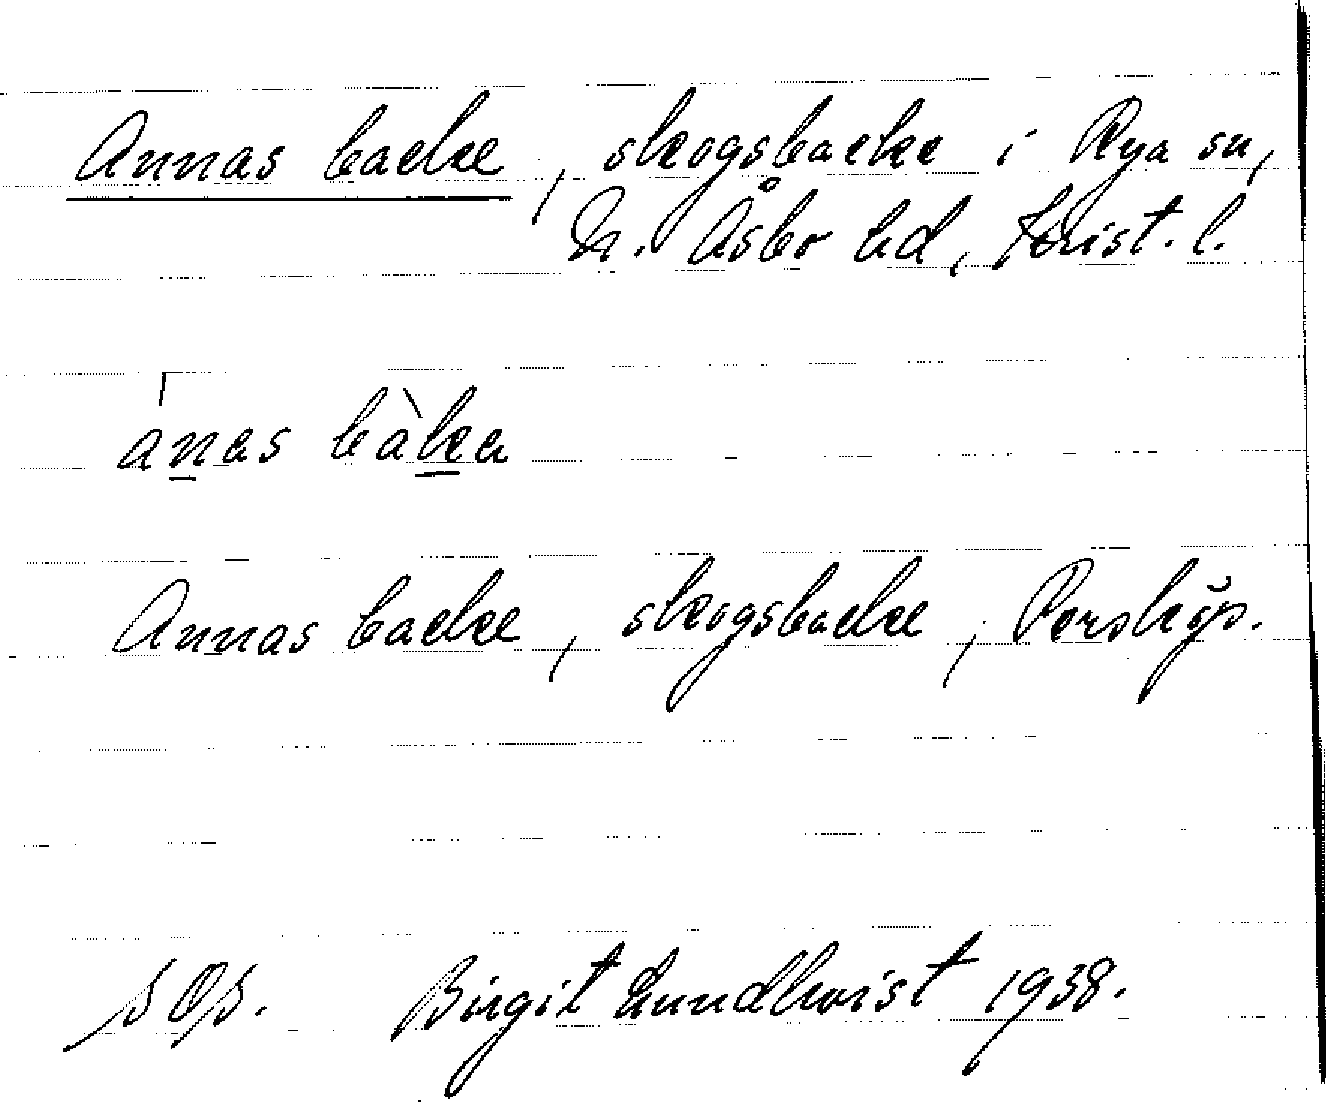 Annas backe, skogsbacke i Rya sn,
N. Åsbo hd, Krist. l.
anas bàka
Annas backe, skogsbacke,
Birgit Lundkvist 1938.